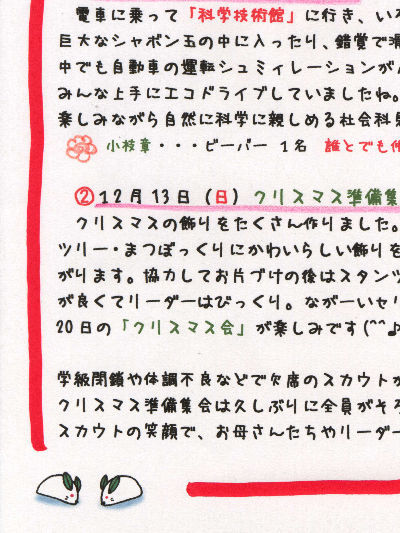 電車に乗って「科学技術館」に行き、いろ
巨大なシャボン玉の中に入ったり、錯覚で滑
中でも自動車の運転シュミィレーションが
みんな上手にエコドライブしていましたね。
楽しみながら自然に科学に親しめる社会科見
小枝章・・・ビーバー 1名 誰とでも仲
②12月13日(日) クリスマス準備集
クリスマスの飾りをたくさん作りました。
ツリー・まつぼっくりにかわいらしい飾りを
がります。協力してお片づけの後はスタンツ
が良くてリーダーはびっくり。ながーいセリ
20日の「クリスマス会」が楽しみです(^^♪
学級閉鎖や体調不良などで欠席のスカウトが
クリスマス準備集会は久しぶりに全員がそろ
スカウトの笑顔で、お母さんたちやリーダー